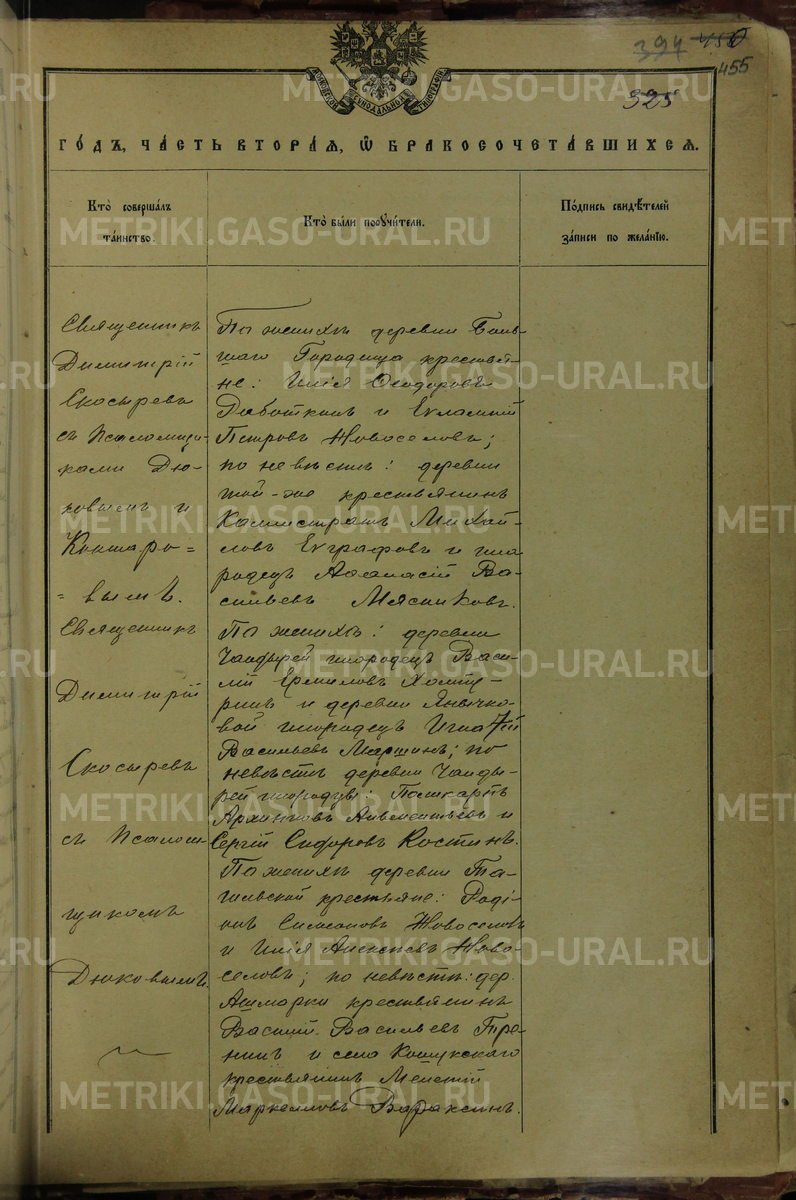 394 450
455
325
МОСКОВСКОЙ СИНОДАЛЬНОЙ ТИПОГРАФІИ
ГО́ДЪ, ЧА́СТЬ ВТОРА́Я, Ѡ БРАКОСОЧЕТА́ВШИХСЯ.
Кто̀ соверша́лъ
та́инство.
Кто̀ бы́ли поручи́тели.
По́дпись свидѣ́телей
за́писи по жела́нію.
Священникъ
Димитрій
Скосыревъ
съ Псаломщи-
ками Дю-
ковымъ и
=вымъ.
По женихѣ деревни Боль-
шаго Городища крестья-
не: Илія Ѳеодоровъ
и Евлампій
Петровъ Новоселовъ;
по невѣстѣ: деревни
той-же крестьянинъ
Каллистратъ Михай-
ловъ Евграфовъ и ино
родецъ Аѳанасій Ва-
сильевъ Мясниковъ.
Священникъ
Димитрій
Скосыревъ
съ Псалом-
щикомъ
Дюковымъ.
По женихѣ: деревни
Чандырей инородецъ Васи-
лій Ермиловъ
и деревни Янычко-
вой инородецъ Игнатій
Васильевъ Мартинъ; по
невѣстѣ деревни Чанды-
рей инородцы: Поликарпъ
Архиповъ и
Сергій Сидоровъ Костинъ.
По женихѣ деревни Та-
гильской крестьяне: Роді-
онъ Симеоновъ Новоселовъ
и Илія Алексѣевъ Ново-
селовъ; по невѣстѣ: дер.
Ашмарки крестьянинъ
Василій Васильевъ
и села Кошукскаго
крестьянинъ
Маркелловъ Вараксинъ.
METRIKI.GASO-URAL.RU